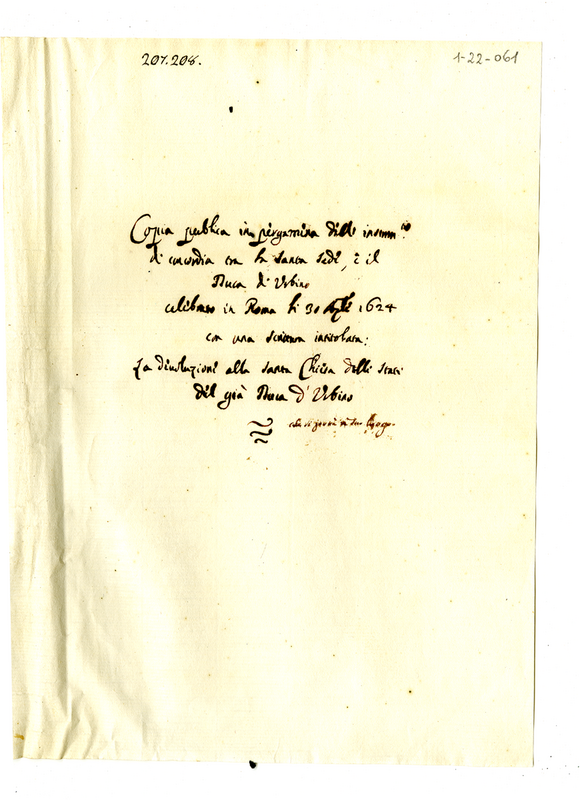 207.208.
1-22-061
Copia publica in pergamena delli instrum.to
di concordia tra la Santa Sede, è il
Duca d'Urbino
celebrato in Roma li 30 Aple 1624
con una scrittura intitolata:
La devoluzione alla santa Chiesa delli stati
del già Duca d'Urbino